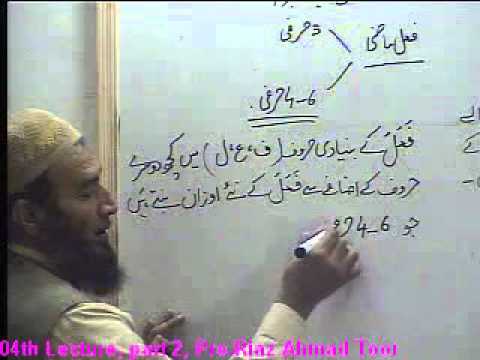 3 حرفی
فعل ماضی
4-6 حرفی.
فَعَلَ کے بنیادی حروف (ف، ع، ل) میں کچھ دوسرے
حروف کے اضافے سے فَعَلَ کے نئے اوزان بنتے ہیں
جو 4-6 حرفی
کے
04th Lecture, part 2, Pro.Riaz Ahmad Toor